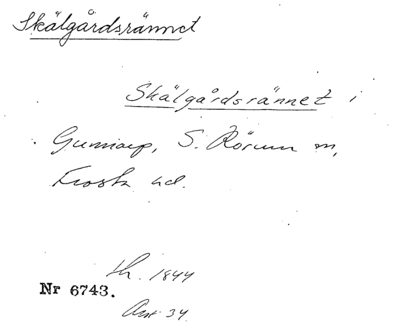 Skälgårdsrännet
Skälgårdsrännet i
Gunnarp, S. Rörum sn,
Frosta hd.
th. 1844
Nr 6743.
Ant 34